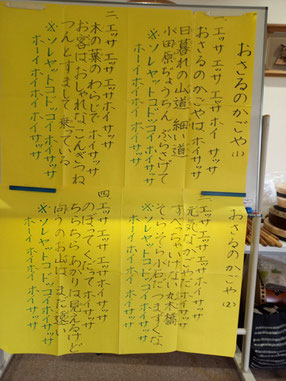 おさるのかごや(1)
一、エッサ エッサ エッサホイ サッサ
おさるのかごやは、ホイサッサ
日暮れの山道 細い道
小田原ちょうちん ぶらさげて
※ソレヤットコドッコイホイサッサ
ホーイホイホイホイサッサ
二、エッサ エッサ エッサホイサッサ
木の葉のわらじで ホイサッサ
お客は、おしゃれな こんぎつね
つんとすまして 乗っている
※ソレヤットコドッコイホイサッサ
ホーイホイホイホイサッサ
おさるのかごや(2)
三、エッサ エッサ エッサホイサッサ
元気なかごやだ ホイサッサ
すべっちゃいけない 丸木橋
そらそら小石だ つまずくな
※ソレヤットコドッコイホイサッサ
ホーイホイホイホイサッサ
四、エッサ エッサ エッサホイサッサ
のぼってくだって ホイサッサ
ちらちらあかりは見えるけど
向うのお山は、まだ遠い
※ソレヤットコドッコイホイサッサ
ホーイホイホイホイサッサ